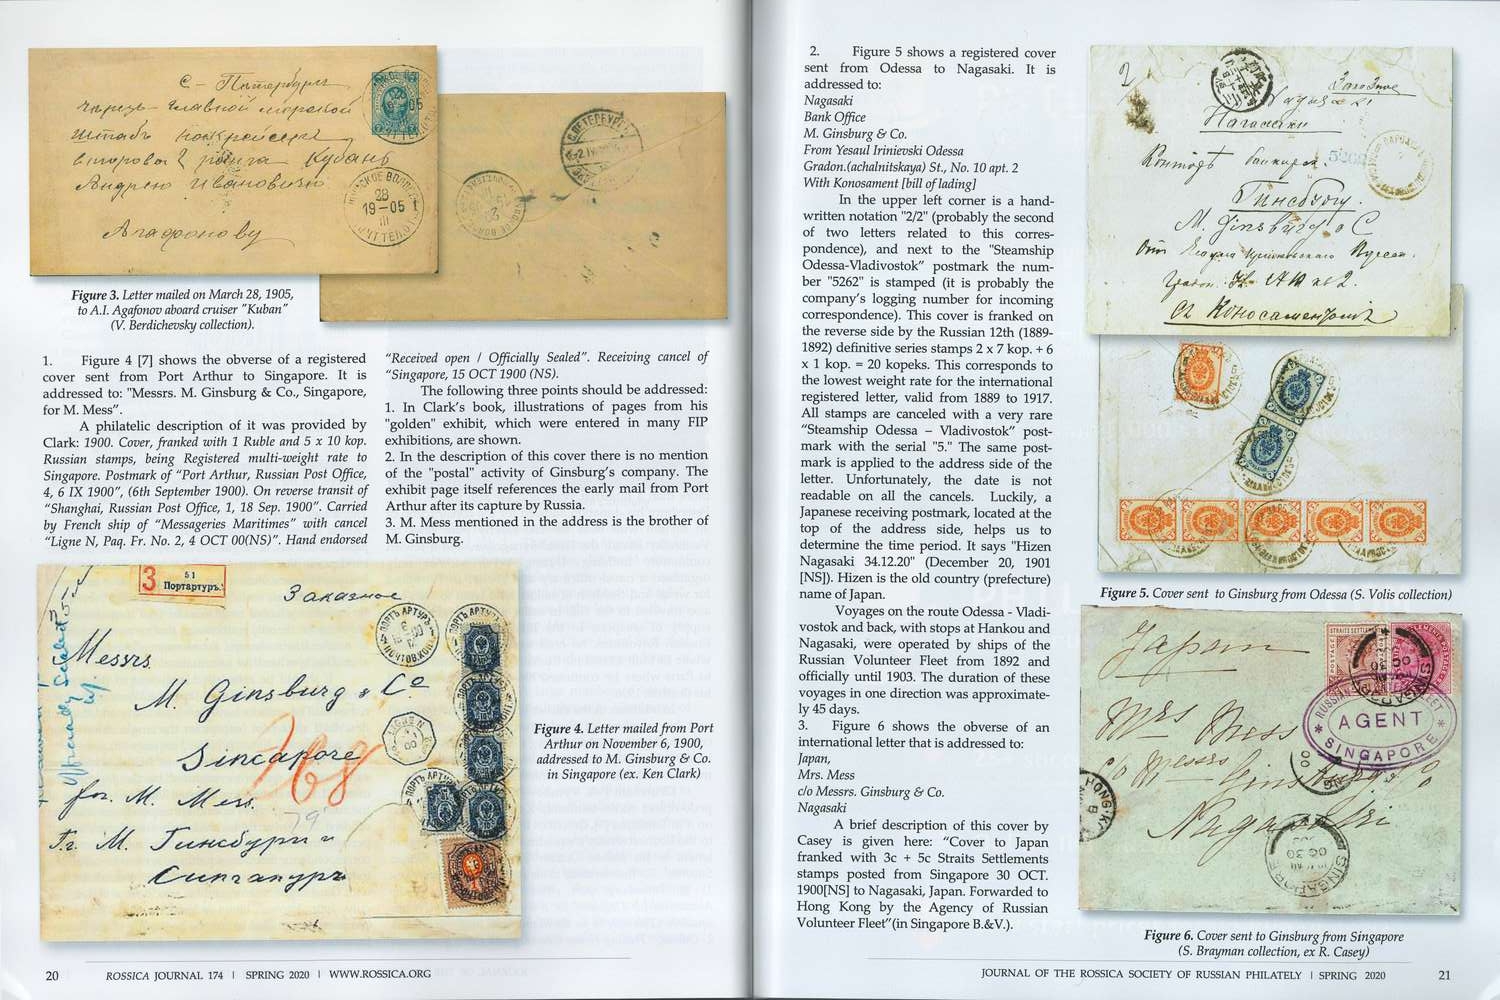 С-Петербургъ
Черезъ Главной морской
Штабъ
второго ранга Кубань
Андрею Ивановичу
Агафонову
28
19-05
III
С.ПЕТЕРБУРГЪ
Figure 3. Letter mailed on March 28, 1905,
to A.I. Agafonov aboard cruiser "Kuban"
(V. Berdichevsky collection).
1. Figure 4 [7] shows the obverse of a registered
cover sent from Port Arthur to Singapore. It is
addressed to: "Messrs. M. Ginsburg & Co., Singapore,
for M. Mess".
A philatelic description of it was provided by
Clark: 1900. Cover, franked with 1 Ruble and 5 x 10 kop.
Russian stamps, being Registered multi-weight rate to
Singapore. Postmark of "Port Arthur, Russian Post Office,
4, 6 IX 1900", (6th September 1900). On reverse transit of
"Shanghai, Russian Post Office, 1, 18 Sep. 1900". Carried
by French ship of "Messageries Maritimes" with cancel
"Ligne N, Paq. Fr. No. 2, 4 OCT 00(NS)". Hand endorsed
"Received open / Officially Sealed". Receiving cancel of
"Singapore, 15 OCT 1900 (NS).
The following three points should be addressed:
1. In Clark's book, illustrations of pages from his
"golden" exhibit, which were entered in many FIP
exhibitions, are shown.
2. In the description of this cover there is no mention
of the "postal" activity of Ginsburg's company. The
exhibit page itself references the early mail from Port
Arthur after its capture by Russia.
3. M. Mess mentioned in the address is the brother of
M. Ginsburg.
3
51
Портартуръ.
Заказное
Officially Sealed
ПОРТЪ АРТУРЪ
Messrs.
M. Ginsburg & Co
Singapore
768
for M. Mess.
79
Гг. М. Гинсбургъ и
Сингапуръ
Figure 4. Letter mailed from Port
Arthur on November 6, 1900,
addressed to M. Ginsburg & Co.
in Singapore (ex. Ken Clark)
20 ROSSICA JOURNAL 174 | SPRING 2020 | WWW.ROSSICA.ORG
2. Figure 5 shows a registered cover
sent from Odessa to Nagasaki. It is
addressed to:
Nagasaki
Bank Office
M. Ginsburg & Co.
From Yesaul Irinievski Odessa
Gradon.(achalnitskaya) St., No. 10 apt. 2
With Konosament [bill of lading]
In the upper left corner is a hand-
written notation "2/2" (probably the second
of two letters related to this corres-
pondence), and next to the "Steamship
Odessa-Vladivostok" postmark the num-
ber "5262" is stamped (it is probably the
company's logging number for incoming
correspondence). This cover is franked on
the reverse side by the Russian 12th (1889-
1892) definitive series stamps 2 x 7 kop. + 6
x 1 kop. = 20 kopeks. This corresponds to
the lowest weight rate for the international
registered letter, valid from 1889 to 1917.
All stamps are canceled with a very rare
"Steamship Odessa – Vladivostok" post-
mark with the serial "5." The same post-
mark is applied to the address side of the
letter. Unfortunately, the date is not
readable on all the cancels. Luckily, a
Japanese receiving postmark, located at the
top of the address side, helps us to
determine the time period. It says "Hizen
Nagasaki 34.12.20" (December 20, 1901
[NS]). Hizen is the old country (prefecture)
name of Japan.
Voyages on the route Odessa - Vladi-
vostok and back, with stops at Hankou and
Nagasaki, were operated by ships of the
Russian Volunteer Fleet from 1892 and
officially until 1903. The duration of these
voyages in one direction was approximate-
ly 45 days.
3. Figure 6 shows the obverse of an
international letter that is addressed to:
Japan,
Mrs. Mess
c/o Messrs. Ginsburg & Co.
Nagasaki
A brief description of this cover by
Casey is given here: "Cover to Japan
franked with 3c + 5c Straits Settlements
stamps posted from Singapore 30 OCT.
1900[NS] to Nagasaki, Japan. Forwarded to
Hong Kong by the Agency of Russian
Volunteer Fleet"(in Singapore B.&V.).
Заказное
Нагасаки
Гинсбургу.
M. Ginsburg & C
Съ Коносаментомъ
Figure 5. Cover sent to Ginsburg from Odessa (S. Volis collection)
Japan
STRAITS SETTLE
Mrs Mess
AGENT
SINGAPORE
c/o Messrs Ginsburg & Co
Nagasaki
HONG K
SINGAPORE
Figure 6. Cover sent to Ginsburg from Singapore
(S. Brayman collection, ex R. Casey)
JOURNAL OF THE ROSSICA SOCIETY OF RUSSIAN PHILATELY | SPRING 2020 21